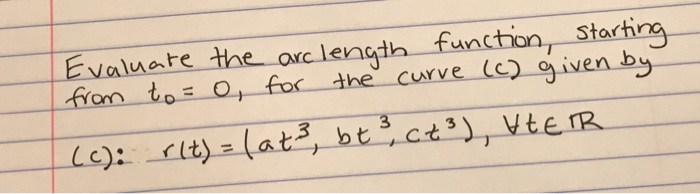 Evaluate the arc length function, starting
from t₀ = 0, for the curve (C) given by
(C): r(t) = (at³, bt³, ct³), ∀t∈ℝ